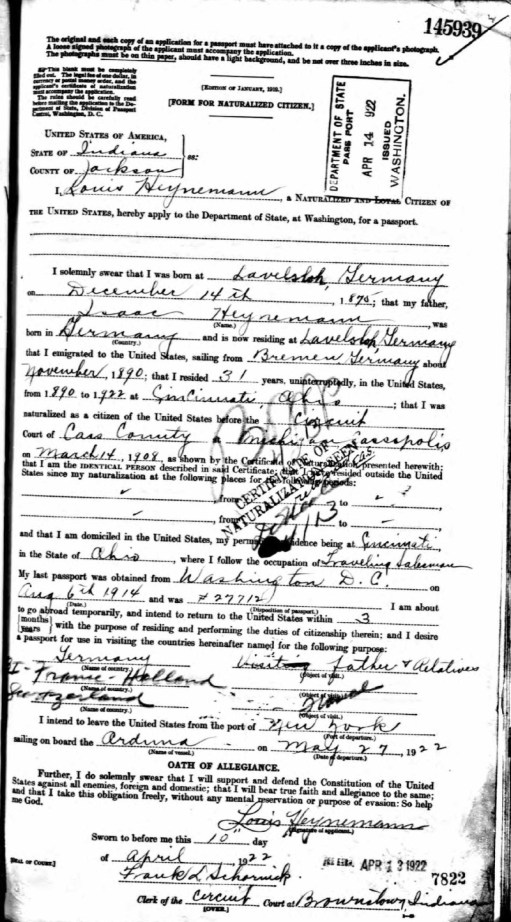 145939
The original and each copy of an application for a passport must have attached to it a copy of the applicant's photograph.
A loose signed photograph of the applicant must accompany the application.
The photographs must be on thin paper, should have a light background, and be not over three inches in size.
This blank must be completely filled out. The legal fee of one dollar, in currency or postal money order, and the applicant's certificate of naturalization must accompany the application.
The rules should be carefully read before mailing the application to the Department of State, Division of Passport Control, Washington, D. C.
[EDITION OF JANUARY, 1919.]
[FORM FOR NATURALIZED CITIZEN.]
DEPARTMENT OF STATE
PASSPORT
APR 14 1922
ISSUED
WASHINGTON.
UNITED STATES OF AMERICA,
STATE OF Indiana
COUNTY OF Jackson
ss:
I, Louis Heynemann, a NATURALIZED AND LOYAL CITIZEN OF
THE UNITED STATES, hereby apply to the Department of State, at Washington, for a passport.
I solemnly swear that I was born at Lavelsloh, Germany
on December 14th, 1875; that my father,
Isaac Heynemann, was
(Name.)
born in Germany and is now residing at Lavelsloh, Germany
(Country.)
that I emigrated to the United States, sailing from Bremen Germany about
November, 1890; that I resided 31 years, uninterruptedly, in the United States,
from 1890 to 1922 at Cincinnati, Ohio; that I was
naturalized as a citizen of the United States before the Circuit
Court of Cass County Michigan Cassopolis
on March 14, 1908, as shown by the Certificate of Naturalization presented herewith;
that I am the IDENTICAL PERSON described in said Certificate; that I have resided outside the United
States since my naturalization at the following places for the following periods:
CERTIFICATE OF
NATURALIZATION SEEN
from to
from to
and that I am domiciled in the United States, my permanent residence being at Cincinnati,
in the State of Ohio, where I follow the occupation of Traveling Salesman
My last passport was obtained from Washington D. C. on
Aug 6th 1914 and was # 27712 I am about
(Date.) (Disposition of passport.)
to go abroad temporarily, and intend to return to the United States within 3
months
years
with the purpose of residing and performing the duties of citizenship therein; and I desire
a passport for use in visiting the countries hereinafter named for the following purpose:
Germany Visiting Father & Relatives
(Name of country.) (Object of visit.)
France - Holland
(Name of country.) (Object of visit.)
Switzerland Travel
(Name of country.) (Object of visit.)
I intend to leave the United States from the port of New York
(Port of departure.)
sailing on board the Orduna on May 27, 1922
(Name of vessel.) (Date of departure.)
OATH OF ALLEGIANCE.
Further, I do solemnly swear that I will support and defend the Constitution of the United
States against all enemies, foreign and domestic; that I will bear true faith and allegiance to the same;
and that I take this obligation freely, without any mental reservation or purpose of evasion: So help
me God.
Louis Heynemann
(Signature of applicant.)
Sworn to before me this 10" day
of April, 1922
APR 13 1922
7822
[SEAL OF COURT.]
Clerk of the Circuit Court at Brownstown, Indiana
(OVER.)